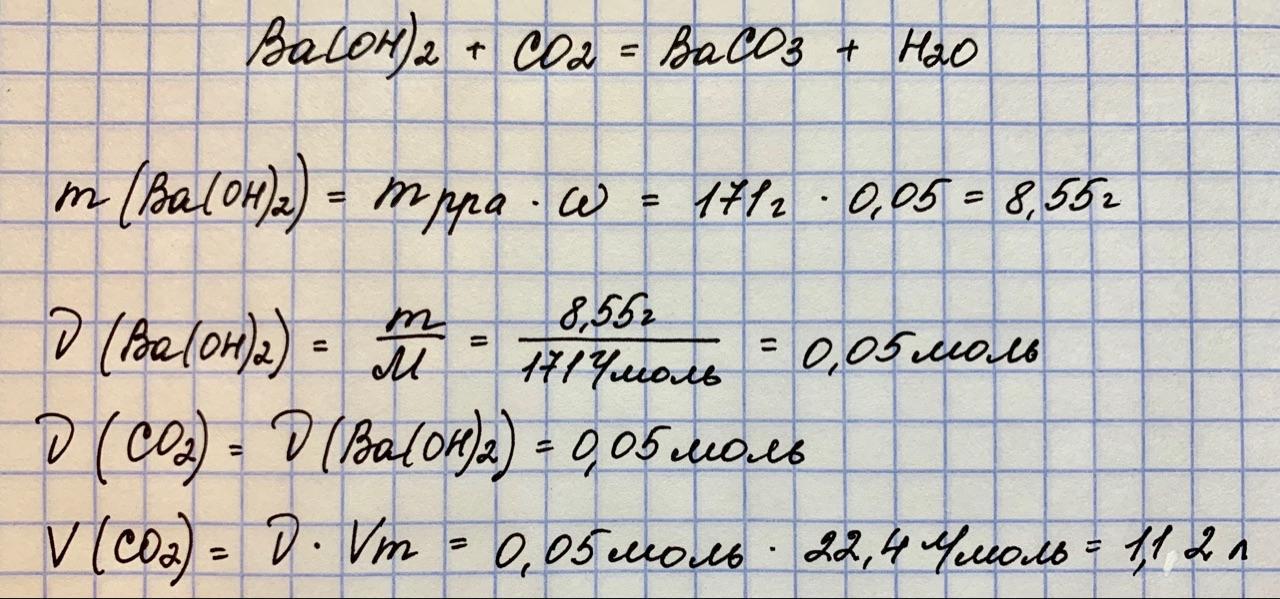 Ba(OH)2 + CO2 = BaCO3 + H2O
m (Ba(OH)2) = m рра · ω = 171г · 0,05 = 8,55г
ν (Ba(OH)2) = m/M = 8,55г/171г/моль = 0,05 моль
ν (CO2) = ν (Ba(OH)2) = 0,05 моль
V (CO2) = ν · Vm = 0,05 моль · 22,4 л/моль = 1,1,2 л